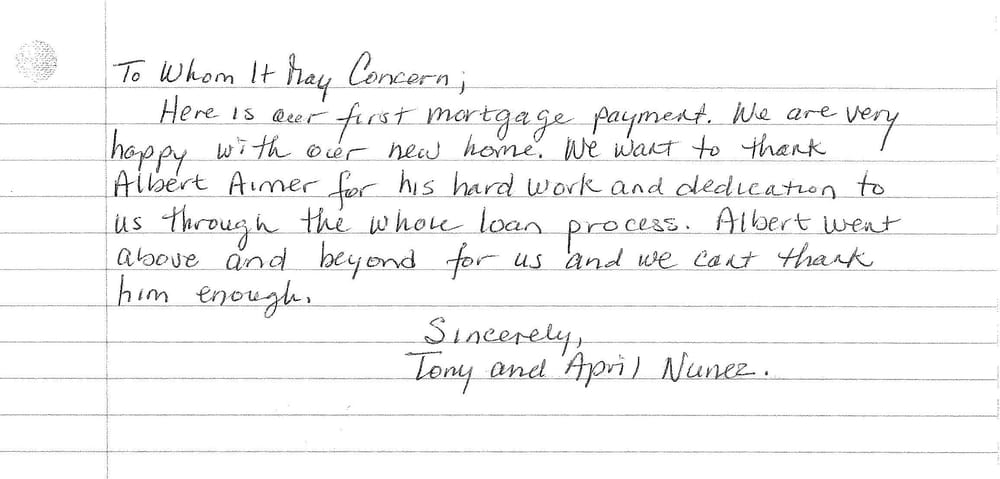 To Whom It May Concern;
Here is our first mortgage payment. We are very
happy with our new home. We want to thank
Albert Aimer for his hard work and dedication to
us through the whole loan process. Albert went
above and beyond for us and we cant thank
him enough.
Sincerely,
Tony and April Nunez.